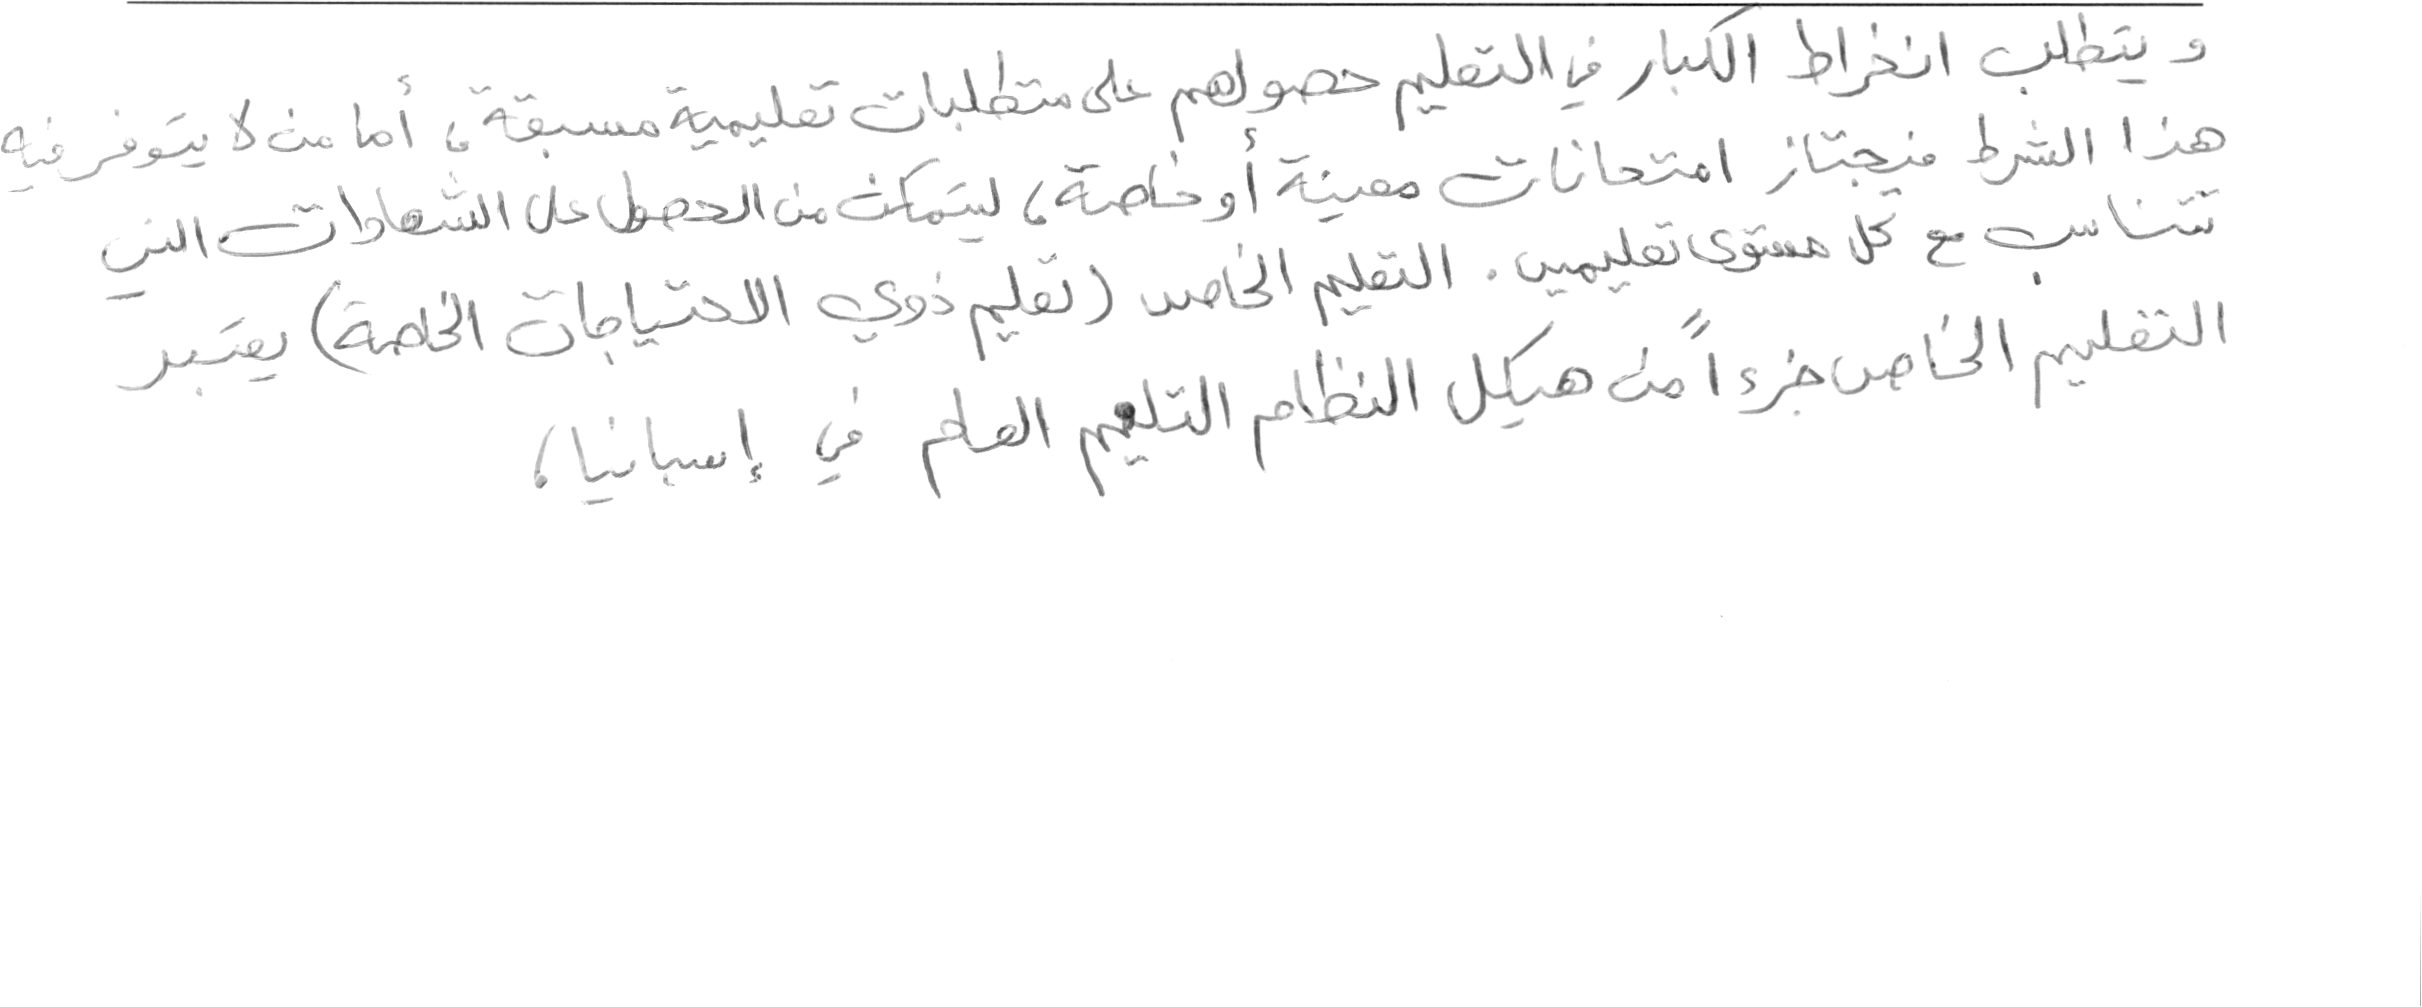 ويتطلب انخراط الكبار في التعليم حصولهم على متطلبات تعليمية مسبقة، أما من لا يتوفر فيه
هذا الشرط فيجتاز امتحانات معينة أو خاصة، ليتمكن من الحصول على الشهادات التي
تتناسب مع كل مستوى تعليمي. التعليم الخاص (تعليم ذوي الاحتياجات الخاصة) يعتبر
التعليم الخاص جزءاً من هيكل النظام التلعيم العام في إسبانيا،